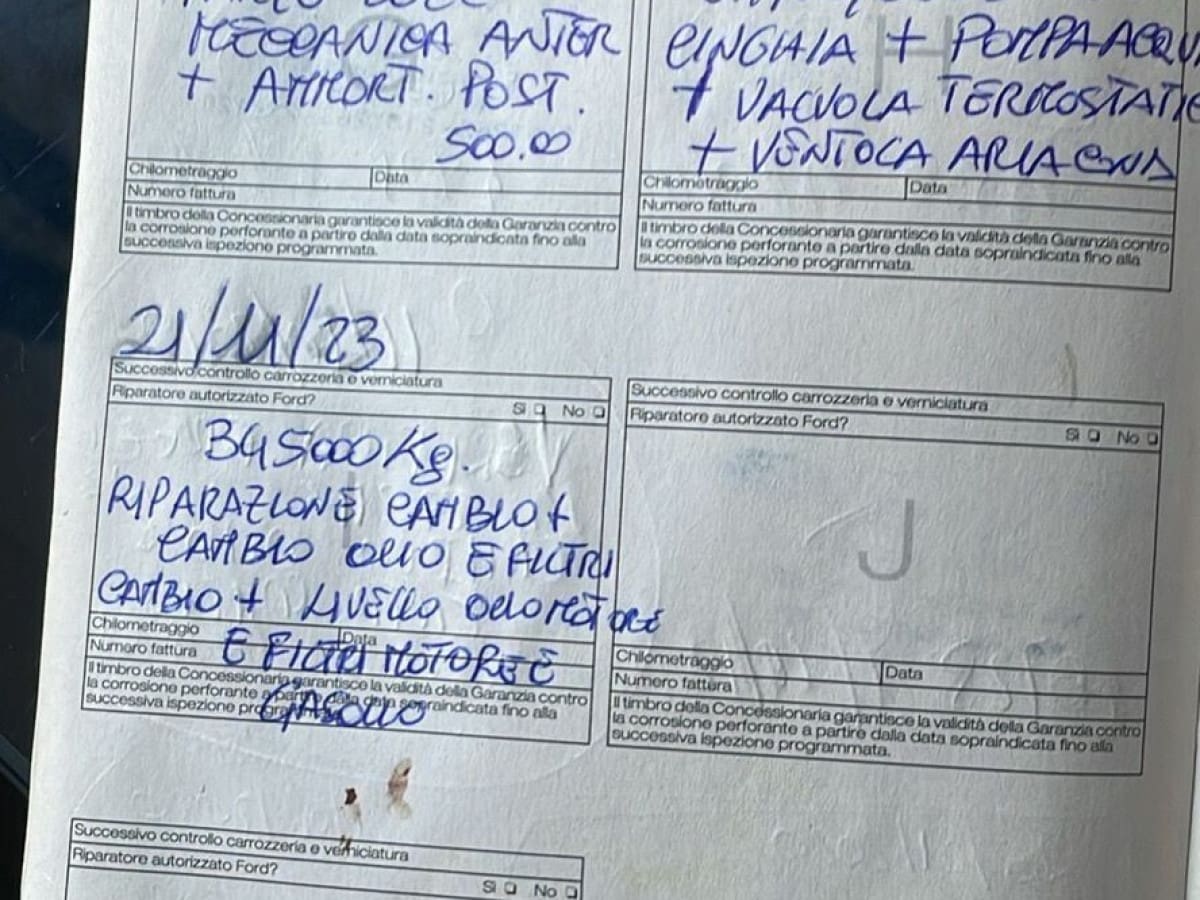 MECCANICA ANTER
+ AMMORT. POST.
500.00
Chilometraggio Data
Numero fattura
Il timbro della Concessionaria garantisce la validità della Garanzia contro
la corrosione perforante a partire dalla data sopraindicata fino alla
successiva ispezione programmata.
CINGHIA + POMPA ACQU
+ VACUOLA TERMOSTATIC
+ VENTOLA ARIA
Chilometraggio Data
Numero fattura
Il timbro della Concessionaria garantisce la validità della Garanzia contro
la corrosione perforante a partire dalla data sopraindicata fino alla
successiva ispezione programmata.
21/11/23
Successivo controllo carrozzeria e verniciatura
Riparatore autorizzato Ford?
Sì No
345000 Kg.
RIPARAZIONE CAMBIO +
CAMBIO OLIO E FILTRI
CAMBIO + LIVELLO OLIO MOTORE
Chilometraggio Data
Numero fattura
E FILTRI MOTORE E
GASOLIO
Il timbro della Concessionaria garantisce la validità della Garanzia contro
la corrosione perforante a partire dalla data sopraindicata fino alla
successiva ispezione programmata.
Successivo controllo carrozzeria e verniciatura
Riparatore autorizzato Ford?
Sì No
J
Chilometraggio Data
Numero fattura
Il timbro della Concessionaria garantisce la validità della Garanzia contro
la corrosione perforante a partire dalla data sopraindicata fino alla
successiva ispezione programmata.
Successivo controllo carrozzeria e verniciatura
Riparatore autorizzato Ford?
Sì No